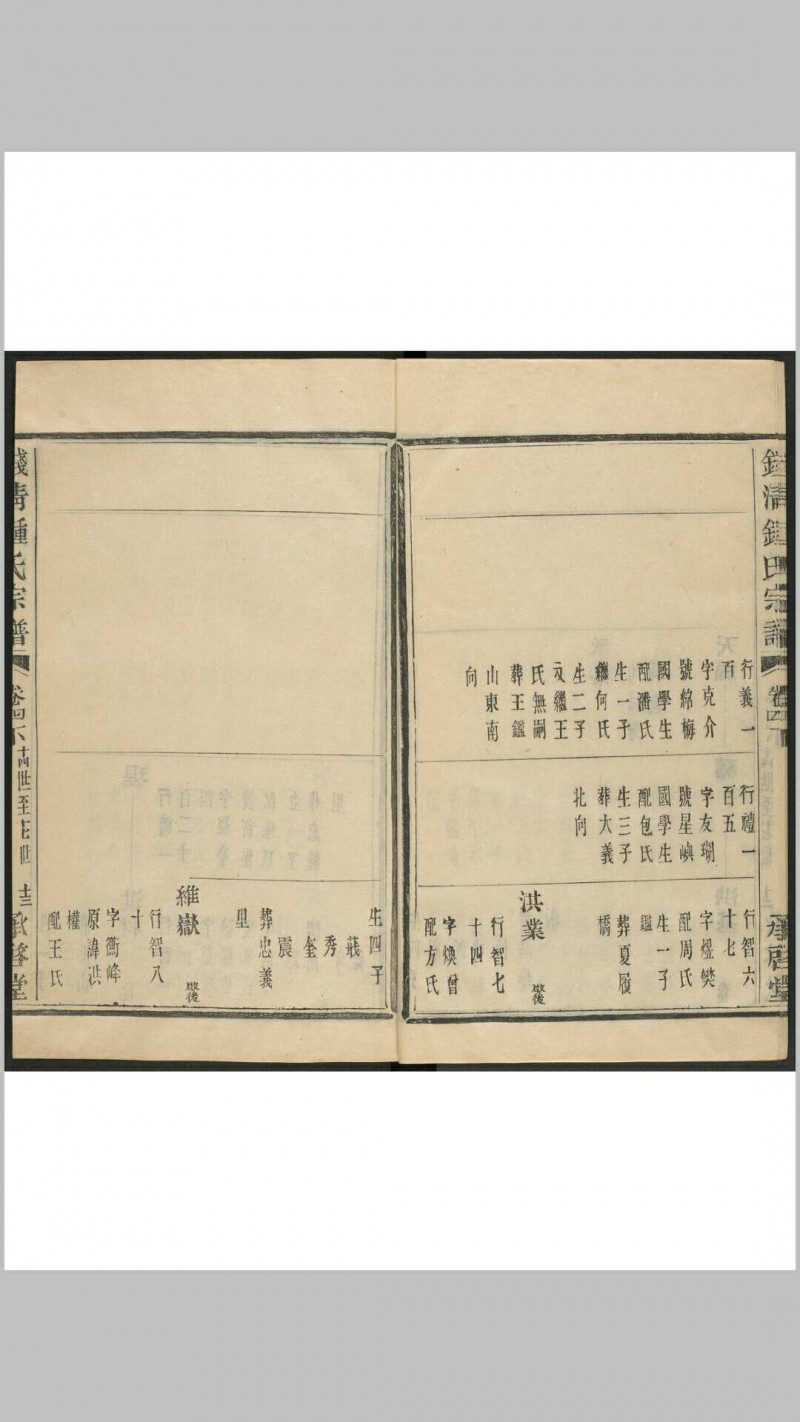 錢清鍾氏宗譜
卷四下
承啓堂
行義一
百
字克介
號綌梅
國學生
配潘氏
生一子
繼何氏
生二子
又繼王
氏無嗣
葬王鑑
山東南
向
行禮一
百五
字友瑚
號星嶼
國學生
配包氏
生三子
葬大義
北向
行智六
十七
字煜樊
配周氏
生一子
鑑
葬夏履
橋
洪業
行智七
十四
字煥曾
配方氏
生四子
莪
秀
奎
震
葬忠義
里
維嶽
行智八
十
字衡峰
原諱洪
權
配王氏
錢清鍾氏宗譜
卷四下
世至
世
十三
承啓堂